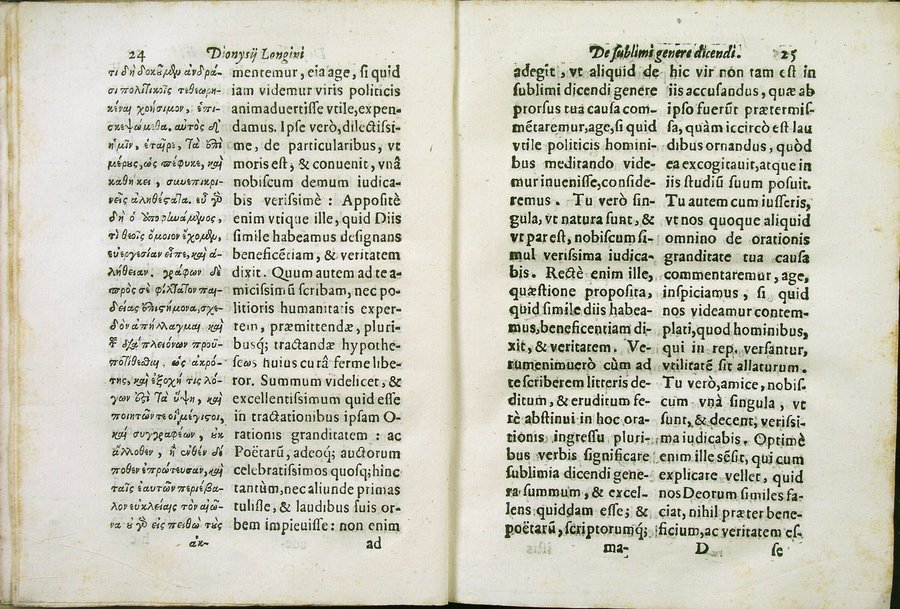 24
Dionysij Longini
τι δὴ δοκοῦμεν ἀνδρά-
σι πολιτικοῖς τεθεωρη-
κέναι χρήσιμον, ἐπι-
σκεψώμεθα. αὐτὸς δ'
ἡμῖν, ἑταῖρε, τὰ ἐπὶ
μέρους, ὡς πέφυκε, καὶ
καθήκει, συνεπικρι-
νεῖς ἀληθέστατα. εὖ γὰρ
δὴ ὁ ὑποφηνάμενος,
τί θεοῖς ὅμοιον ἔχομεν,
εὐεργεσίαν εἶπε, καὶ ἀ-
λήθειαν. γράφων δὲ
πρὸς σὲ φίλτατον παι-
δείας ἐπιστήμονα, σχε-
δὸν ἀπήλλαγμαι καὶ
τοῦ διὰ πλειόνων προϋ-
ποτίθεσθαι, ὡς ἀκρό-
της, καὶ ἐξοχή τις λό-
γων ἐστὶ τὰ ὕψη, καὶ
ποιητῶν τε οἱ μέγιστοι,
καὶ συγγραφέων, οὐκ
ἄλλοθεν, ἢ ἐνθέν δέ
ποθεν ἐπρώτευσαν, καὶ
ταῖς ἑαυτῶν περιέβα-
λον εὐκλείαις τὸν αἰῶ-
να οὐ γὰρ εἰς πειθὼ τοὺς
ἀκ-
mentemur, eia age, ſi quid
iam videmur viris politicis
animaduertiſſe vtile, expen-
damus. Ipſe verò, dilectiſſi-
me, de particularibus, vt
moris eſt, & conuenit, vnâ
nobiſcum demum iudica-
bis veriſſimè: Appoſitè
enim vtique ille, quid Diis
ſimile habeamus deſignans
beneficētiam, & veritatem
dixit. Quum autem ad te a-
miciſſimū ſcribam, nec po-
litioris humanitatis exper-
tem, præmittendæ, pluri-
busq; tractandæ hypothe-
ſeωs huius curâ ferme libe-
ror. Summum videlicet, &
excellentiſſimum quid eſſe
in tractationibus ipſam O-
rationis granditatem: ac
Poëtarū, adeoq; auctorum
celebratiſſimos quoſq; hinc
tantùm, nec aliunde primas
tuliſſe, & laudibus ſuis or-
bem impieuiſſe: non enim
ad
De ſublimi genere dicendi.
25
adegit, vt aliquid de
ſublimi dicendi genere
prorſus tua cauſa com-
mētaremur, age, ſi quid
vtile politicis homini-
bus meditando vide-
mur inueniſſe, conſide-
remus. Tu verò ſin-
gula, vt natura ſunt, &
vt par eſt, nobiſcum ſi-
mul veriſſima iudica-
bis. Rectè enim ille,
quæſtione propoſita,
quid ſimile diis habea-
mus, beneficentiam di-
xit, & veritatem. Ve-
rumenimuerò cùm ad
te ſcriberem litteris de-
ditum, & eruditum fe-
rè abſtinui in hoc ora-
tionis ingreſſu pluri-
bus verbis ſignificare
ſublimia dicendi gene-
ra ſummum, & excel-
lens quiddam eſſe; &
poëtarū, ſcriptorumq;
ma-
hic vir non tam eſt in
iis accuſandus, quæ ab
ipſo fuerūt prætermiſ-
ſa, quàm iccircò eſt lau
dibus ornandus, quòd
ea excogitauit, atque in
iis ſtudiū ſuum poſuit.
Tu autem cum iuſſeris,
vt nos quoque aliquid
omnino de orationis
granditate tua cauſa
commentaremur, age,
inſpiciamus, ſi quid
nos videamur contem-
plati, quod hominibus,
qui in rep. verſantur,
vtilitatē ſit allaturum.
Tu verò, amice, nobiſ-
cum vnà ſingula, vt
ſunt, & decent, veriſſi-
ma iudicabis. Optimè
enim ille ſēſit, qui cum
explicare vellet, quid
nos Deorum ſimiles fa-
ciat, nihil præter bene-
ficium, ac veritatem eſ-
D
ſe